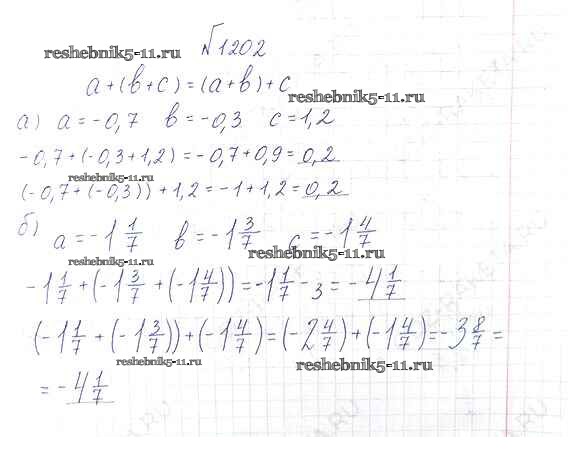 №1202
reshebnik5-11.ru
a+(в+c)=(a+в)+c
reshebnik5-11.ru
а) a=-0,7 в=-0,3 c=1,2
-0,7+(-0,3+1,2)=-0,7+0,9=0,2
reshebnik5-11.ru
(-0,7+(-0,3))+1,2=-1+1,2=0,2
б) a=-1 1/7 в=-1 3/7 c=-1 4/7
reshebnik5-11.ru
-1 1/7+(-1 3/7+(-1 4/7))=-1 1/7-3=-4 1/7
(-1 1/7+(-1 3/7))+(-1 4/7)=(-2 4/7)+(-1 4/7)=-3 8/7=
reshebnik5-11.ru
reshebnik5-11.ru
=-4 1/7
reshebnik5-11.ru